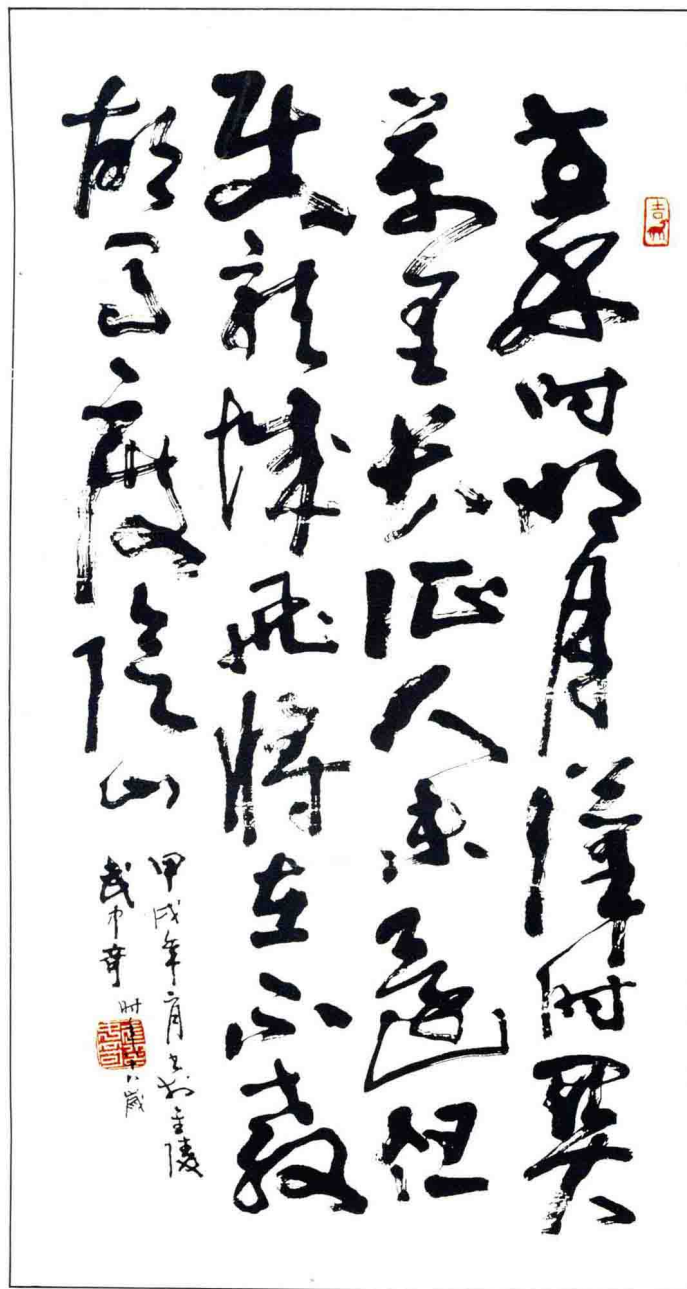 秦時明月漢時關
萬里長征人未還但
使龍城飛將在不教
胡馬度陰山
甲戌年二月書於金陵
武中奇時年八十八歲
吉